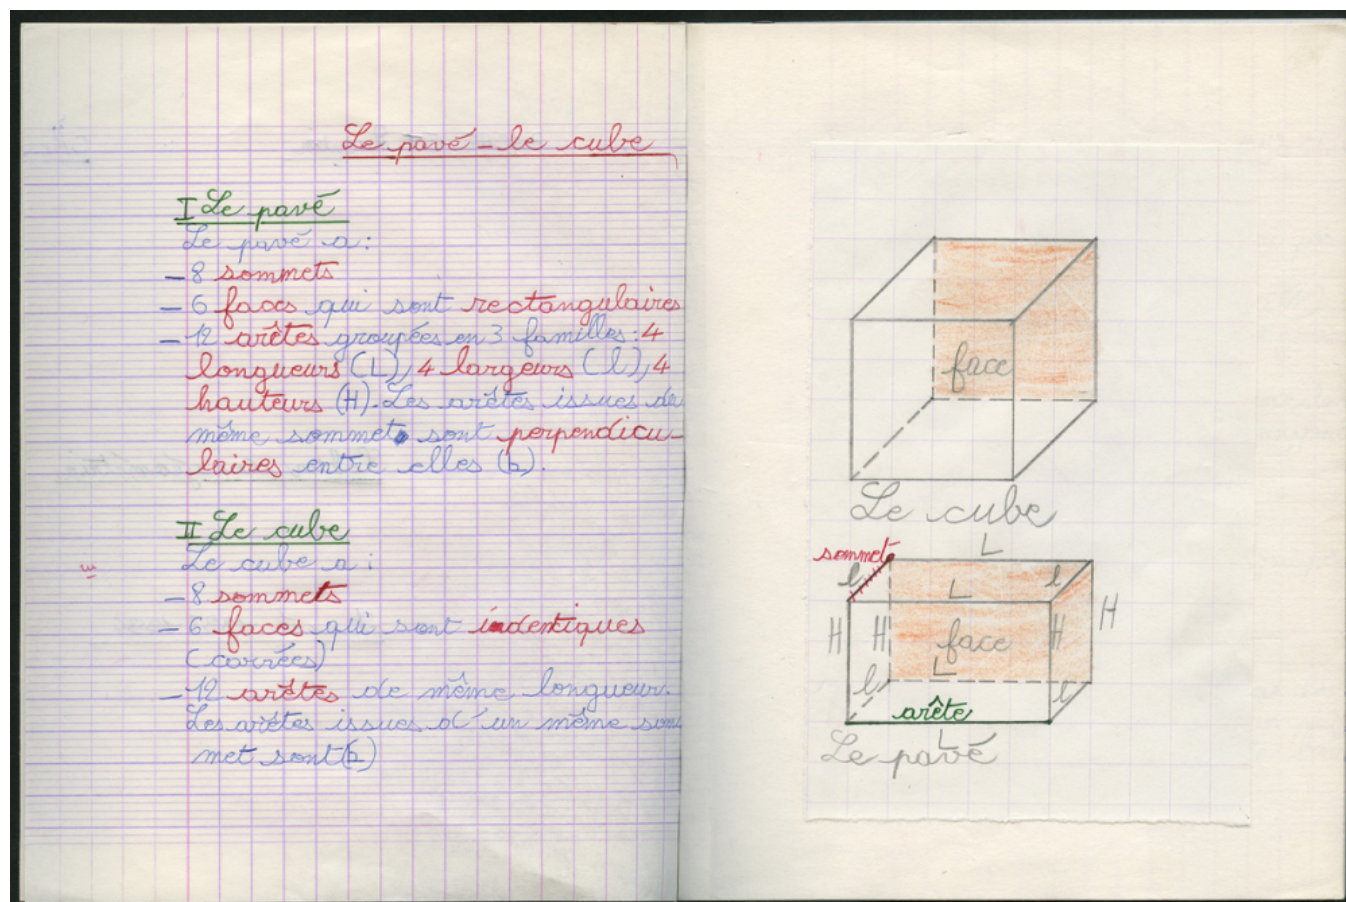 Le pavé - le cube
I Le pavé
Le pavé a:
- 8 sommets
- 6 faces qui sont rectangulaires
- 12 arêtes groupées en 3 familles: 4
longueurs (L), 4 largeurs (l), 4
hauteurs (H). Les arêtes issues du
même sommet sont perpendicu-
laires entre elles (b).
II Le cube
Le cube a:
- 8 sommets
- 6 faces qui sont indentiques
(carrées)
- 12 arêtes de même longueur.
Les arêtes issues d'un même som
met sont (b)
face
Le cube
sommet
L
l
L
l
H
H
face
H
H
L
l
l
arête
L
Le pavé